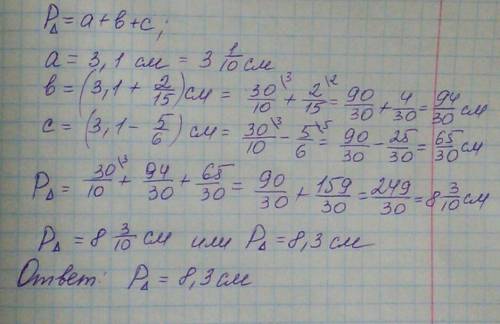 P△ = a + в + c;
a = 3,1 см = 3 1/10 см
в = (3,1 + 2/15) см = 30/10\3 + 2/15\2 = 90/30 + 4/30 = 94/30 см
c = (3,1 - 5/6) см = 30/10\3 - 5/6\5 = 90/30 - 25/30 = 65/30 см
P△ = 30/10\3 + 94/30 + 65/30 = 90/30 + 159/30 = 249/30 = 8 3/10 см
P△ = 8 3/10 см или P△ = 8,3 см
Ответ: P△ = 8,3 см